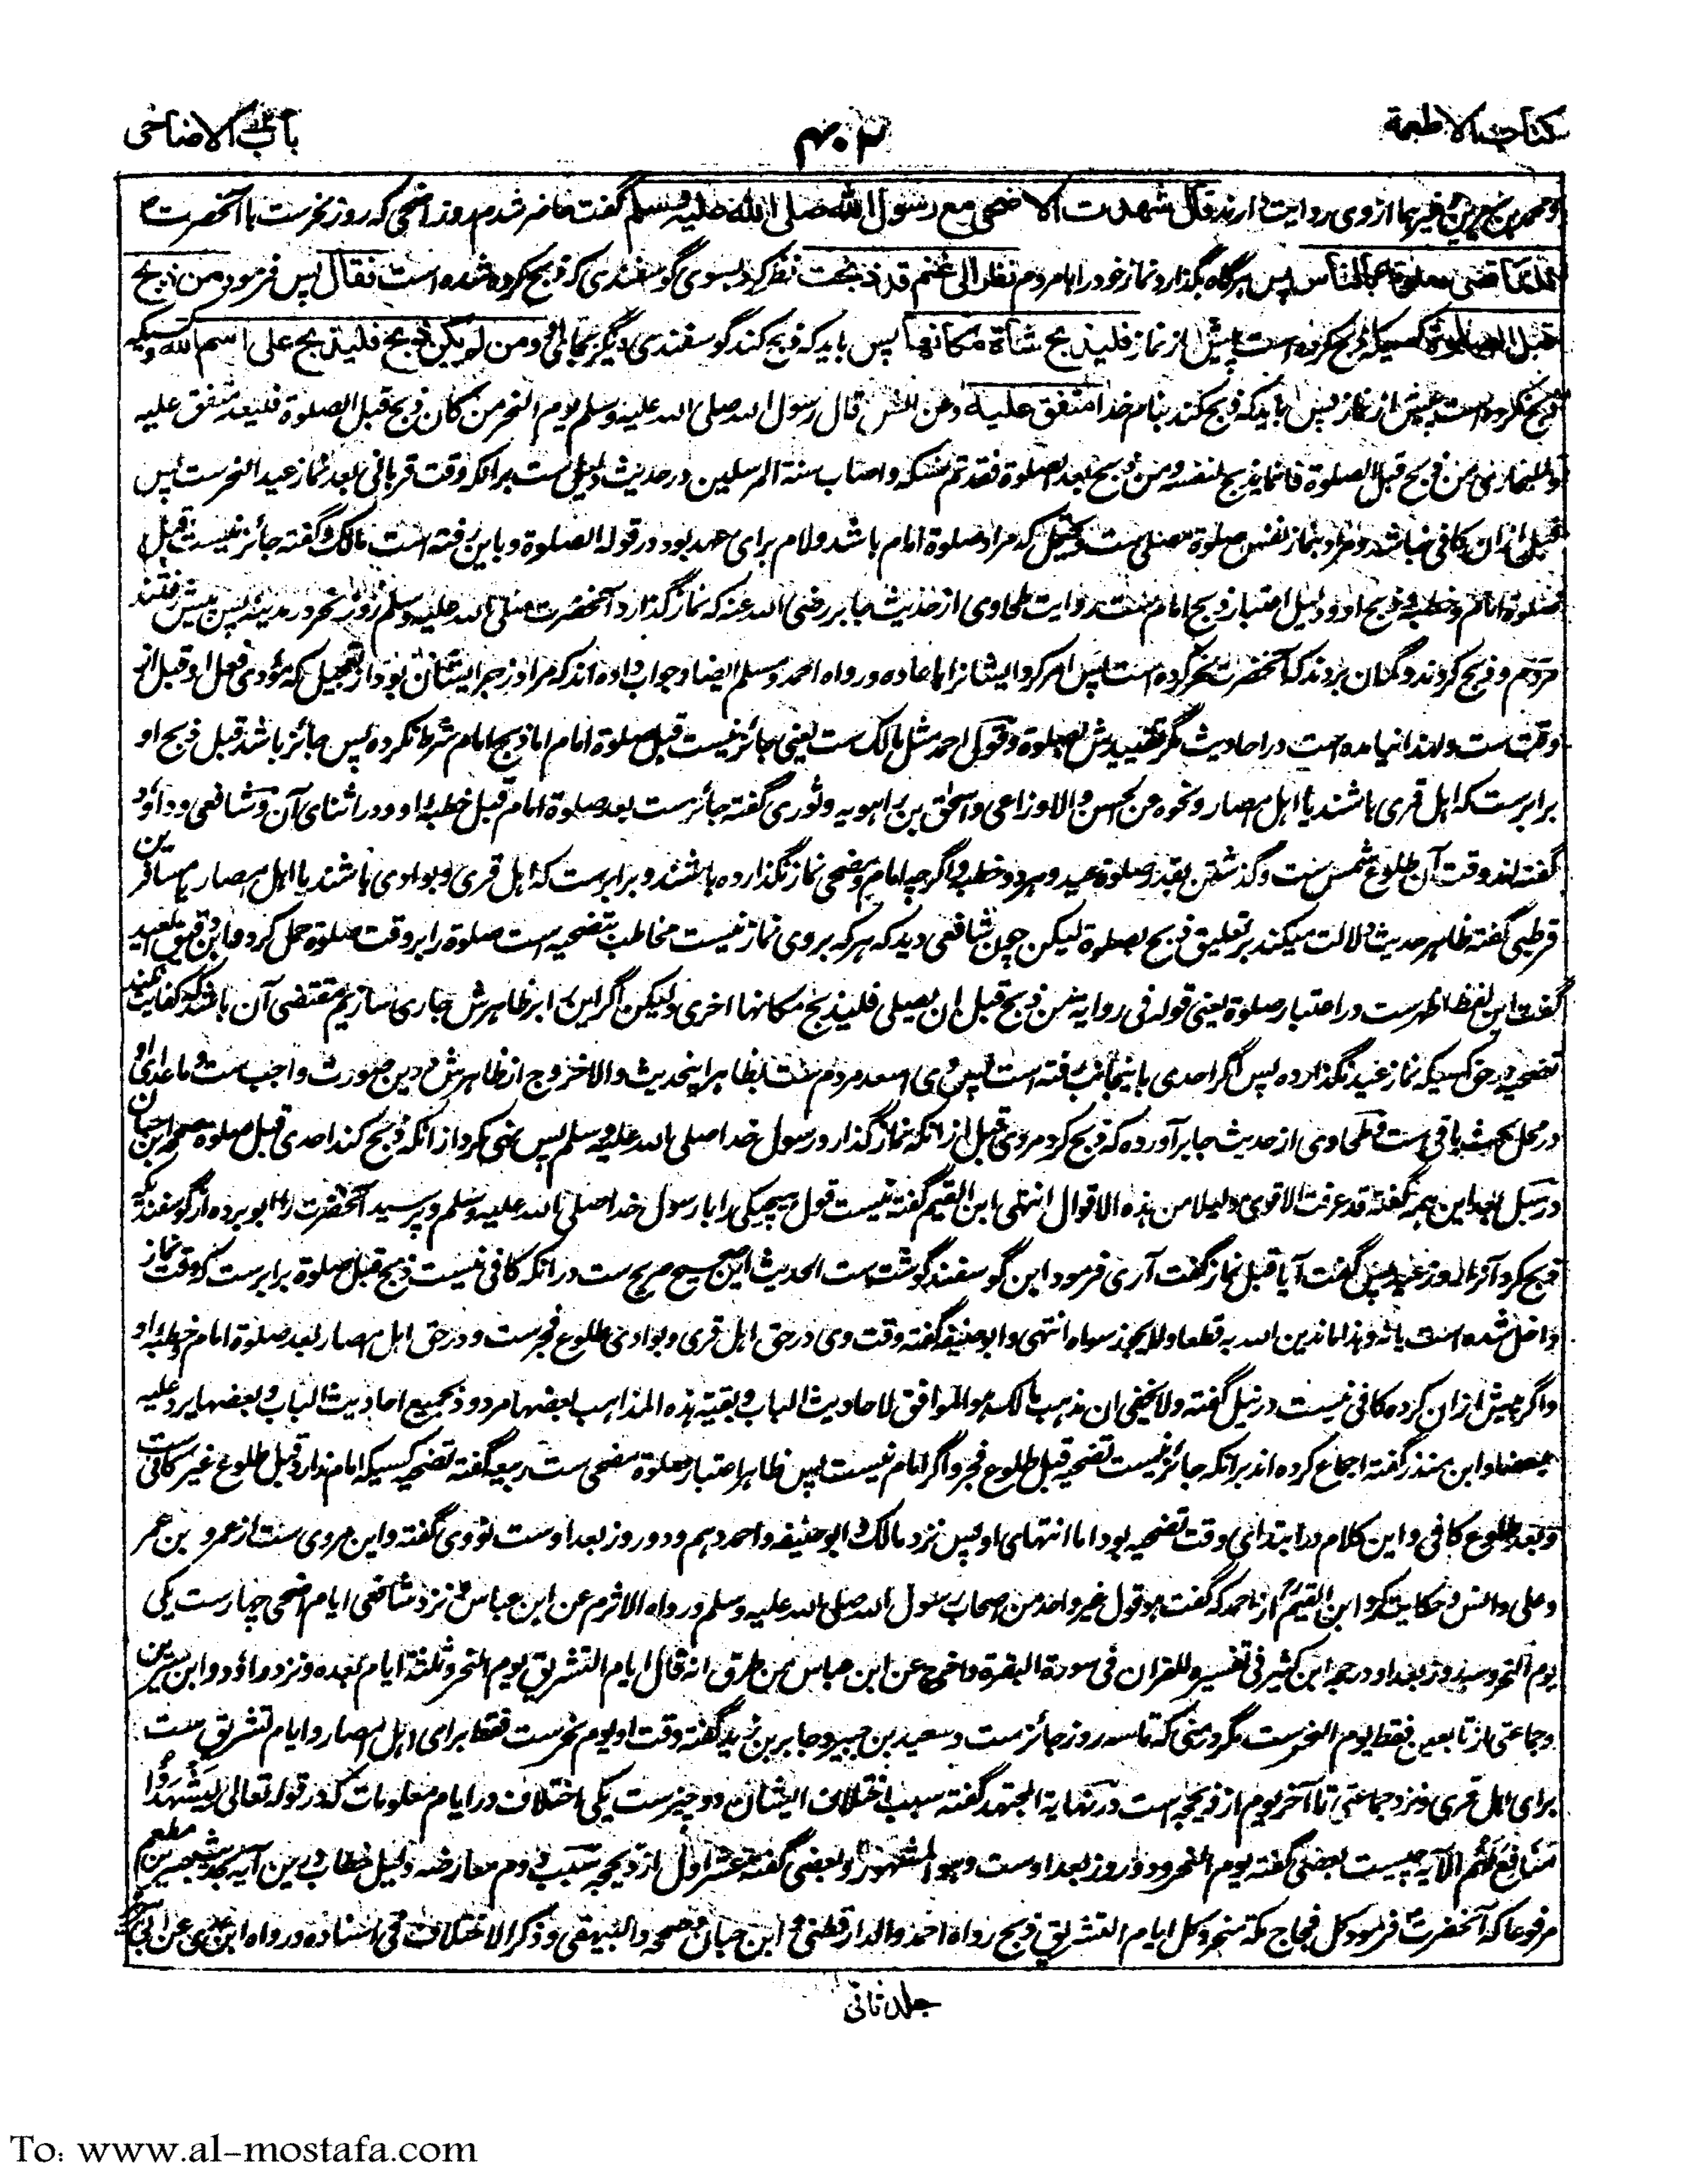 کتاب الاطعمة
۴۰۲
باب الاضاحی
ومحمد بن سیرین وغیرهما از وی روایت دارند قال شهدت الاضحی مع رسول الله صلی الله علیه وسلم گفت حاضر شدم روز اضحی که روز نحرست با آنحضرت
فلما قضی صلوته بالناس پس هرگاه بگذارد نماز خود را با مردم نظر الی غنم قد ذبحت نظر کرد بسوی گوسفندی که ذبح کرده شده است فقال پس فرمود من ذبح
قبل الصلوة کسیکه ذبح کرده است پیش از نماز فلیذبح شاة مکانها پس باید که ذبح کند گوسفندی دیگر بجای او ومن لم یکن ذبح فلیذبح علی اسم الله وکسیکه
ذبح نکرده است پیش از نماز پس باید که ذبح کند بنام خدا متفق علیه وعن انس قال رسول الله صلی الله علیه وسلم یوم النحر من کان ذبح قبل الصلوة فلیعد متفق علیه
وللبخاری من ذبح قبل الصلوة فانما یذبح لنفسه ومن ذبح بعد الصلوة فقد تم نسکه واصاب سنة المرسلین در حدیث دلیل ست برانکه وقت قربانی بعد نماز عید النحرست پس
قبل ازان کافی نباشد ومراد بنماز نفس صلوة مصلی ست ومحتمل که مراد صلوة امام باشد ولام برای عهد بود در قوله الصلوة وباین رفته است مالک وگفته جائز نیست قبل
صلوة امام وخطبه وذبح او ودلیل اعتبار ذبح امام ست روایت طحاوی از حدیث جابر رضی الله عنه که نماز گذارد آنحضرت صلی الله علیه وسلم روز نحر در مدینه پس پیش رفتند
مردم وذبح کردند وگمان بردند که آنحضرت نحر کرده است پس امر کرد ایشانرا باعاده ورواه احمد ومسلم ایضا وجواب داده اند که مراد زجر ایشان بود از تعجیل که مؤدی فعل او قبل از
وقت ست ولهذا نیامده است در احادیث مگر تقییدش بصلوة وقول احمد مثل مالک ست یعنی جائز نیست قبل صلوة امام اما ذبح امام شرط نکرده پس جائز باشد قبل ذبح او
برابرست که اهل قری باشند یا اهل امصار ونحوه عن الحسن والاوزاعی واسحق بن راهویه وثوری گفته جائزست بعد صلوة امام قبل خطبه او ودر اثنای آن وشافعی وداؤد
گفته اند وقت آن طلوع شمس ست وگذشتن بقدر صلوة عید وهر دو خطبه واگرچه امام ومضحی نماز نگذارده باشند وبرابرست که اهل قری وبوادی باشند یا اهل امصار یا مسافرین
قرطبی گفته ظاهر حدیث دلالت میکند بر تعلیق ذبح بصلوة لیکن چون شافعی دید که هر که بر وی نماز نیست مخاطب بتضحیه است صلوة را بر وقت صلوة حمل کرد وابن دقیق العید
گفت این لفظ اظهرست در اعتبار صلوة یعنی قوله فی روایة من ذبح قبل ان یصلی فلیذبح مکانها اخری ولیکن اگر این را بر ظاهرش جاری سازیم مقتضی آن باشد که کفایت نکند
تضحیه در حق کسیکه نماز عید نگذارده پس اگر احدی باینجانب رفته است پس وی اسعد مردم ست بظاهر اینحدیث والا خروج از ظاهرش درین صورت واجب ست وماعدای او
در محل بحث باقی ست وطحاوی از حدیث جابر آورده که ذبح کرد مردی قبل ازانکه نماز گذارد رسول خدا صلی الله علیه وسلم پس نهی کرد ازانکه ذبح کند احدی قبل صلوة صححه ابن حبان
در سبل بعد این همه گفته قد عرفت الاقوی دلیلا من هذه الاقوال انتهی ابن القیم گفته نیست قول هیچ یکی را با رسول خدا صلی الله علیه وسلم وپرسید آنحضرت را ابو برده از گوسفندیکه
ذبح کرد آنرا روز عید پس گفت آیا قبل نماز گفت آری فرمود این گوسفند گوشت ست الحدیث این صحیح صریح ست درانکه کافی نیست ذبح قبل صلوة برابرست که وقت نماز
داخل شده است یا نه وهذا ما ندین الله به قطعا ولا یجوز سواه انتهی وابو حنیفه گفته وقت وی در حق اهل قری وبوادی طلوع فجرست ودر حق اهل امصار بعد صلوة امام وخطبه او
واگر پیش ازان کرده کافی نیست در نیل گفته ولا یخفی ان مذهب مالک هو الموافق لاحادیث الباب وبقیة هذه المذاهب بعضها مردود بجمیع احادیث الباب وبعضها یرد علیه
بعضها وابن منذر گفته اجماع کرده اند برانکه جائز نیست تضحیه قبل طلوع فجر واگر امام نیست پس ظاهر اعتبار صلوة مضحی ست ربیعه گفته تضحیه کسیکه امام ندارد قبل طلوع غیر کافی ست
وبعد طلوع کافی واین کلام در ابتدای وقت تضحیه بود اما انتهای او پس نزد مالک وابو حنیفه واحمد دهم ودو روز بعد اوست نووی گفته واین مروی ست از عمرو بن عمر
وعلی وانس وحکایت کرد ابن القیم از احمد که گفت هو قول غیر واحد من اصحاب رسول الله صلی الله علیه وسلم ورواه الاثرم عن ابن عباس ونزد شافعی ایام اضحی چهارست یکی
یوم النحر وسه روز بعد او ورجحه ابن کثیر فی تفسیره للقران فی سورة البقرة واخرج عن ابن عباس من طرق انه قال ایام التشریق یوم النحر وثلثة ایام بعده ونزد داؤد وابن سیرین
وجماعتی از تابعین فقط یوم النحرست مگر در منی که تا سه روز جائزست وسعید بن جبیر وجابر بن زید گفته وقت او یوم نحرست فقط برای اهل امصار وایام تشریق ست
برای اهل قری ونزد جماعتی تا آخر یوم از ذیحجه است در نهایة المجتهد گفته سبب اختلاف ایشان دو چیزست یکی اختلاف در ایام معلومات که در قوله تعالی لِیَشْهَدُوْا
مَنَافِعَ لَهُمْ الآیه چیست بعضی گفته یوم النحر ودو روز بعد اوست وهو المشهور وبعضی گفته عشر اول از ذیحجه سبب دوم معارضه دلیل خطاب درین آیه بحدیث جبیر بن مطعم
مرفوعا که آنحضرت فرمود کل فجاج مکة منحر وکل ایام التشریق ذبح رواه احمد والدارقطنی وابن حبان وصححه والبیهقی وذکر الاختلاف فی اسناده ورواه ابن عدی عن ابی
جلد ثانی
To: www.al-mostafa.com